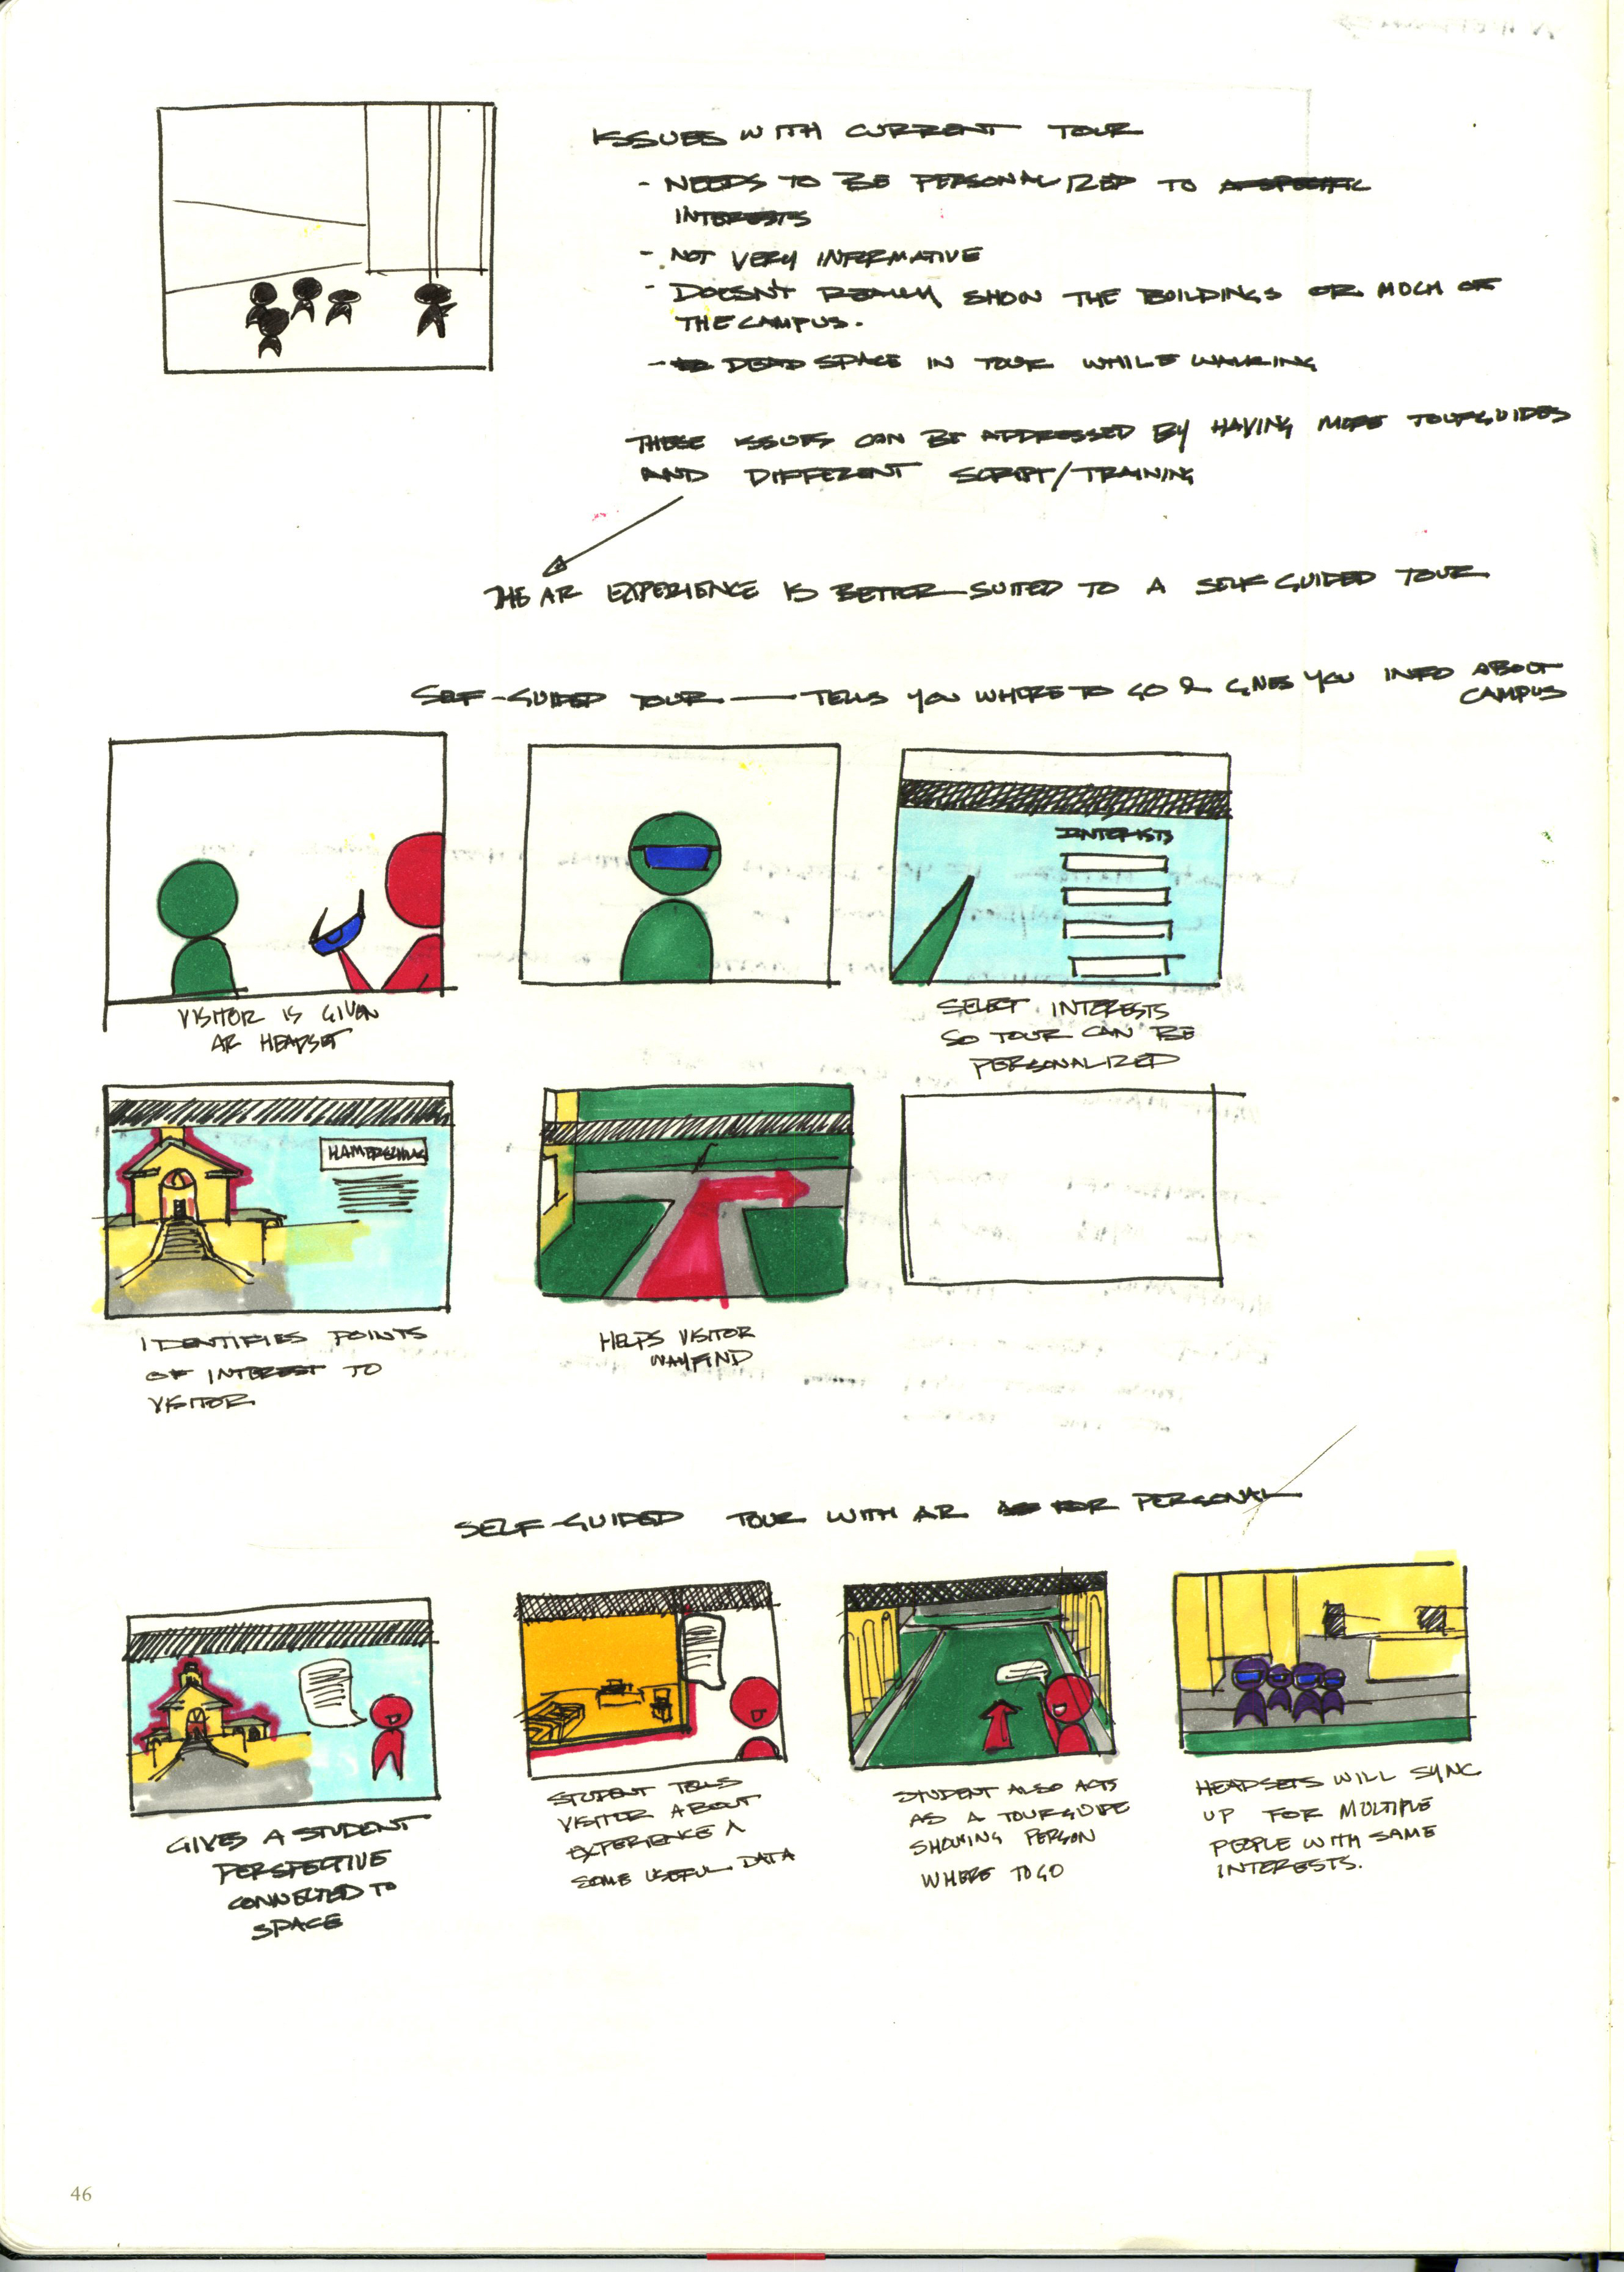 ISSUES WITH CURRENT TOUR
- NEEDS TO BE PERSONALIZED TO A SPECIFIC
INTERESTS
- NOT VERY INFORMATIVE
- DOESN'T REALLY SHOW THE BUILDINGS OR MUCH OF
THE CAMPUS.
- DEAD SPACE IN TOUR WHILE WALKING
THESE ISSUES CAN BE ADDRESSED BY HAVING MORE TOURGUIDES
AND DIFFERENT SCRIPT/TRAINING
THE AR EXPERIENCE IS BETTER SUITED TO A SELF GUIDED TOUR
SELF-GUIDED TOUR — TELLS YOU WHERE TO GO & GIVES YOU INFO ABOUT
CAMPUS
INTERISTS
VISITOR IS GIVEN
AR HEADSET
SELECT INTERESTS
SO TOUR CAN BE
PERSONALIZED
IDENTIFIES POINTS
OF INTEREST TO
VISITOR
HELPS VISITOR
WAYFIND
SELF-GUIDED TOUR WITH AR FOR PERSONAL
GIVES A STUDENT
PERSPECTIVE
CONNECTED TO
SPACE
STUDENT TELLS
VISITOR ABOUT
EXPERIENCE &
SOME USEFUL DATA
STUDENT ALSO ACTS
AS A TOURGUIDE
SHOWING PERSON
WHERE TO GO
HEADSETS WILL SYNC
UP FOR MULTIPLE
PEOPLE WITH SAME
INTERESTS.
46